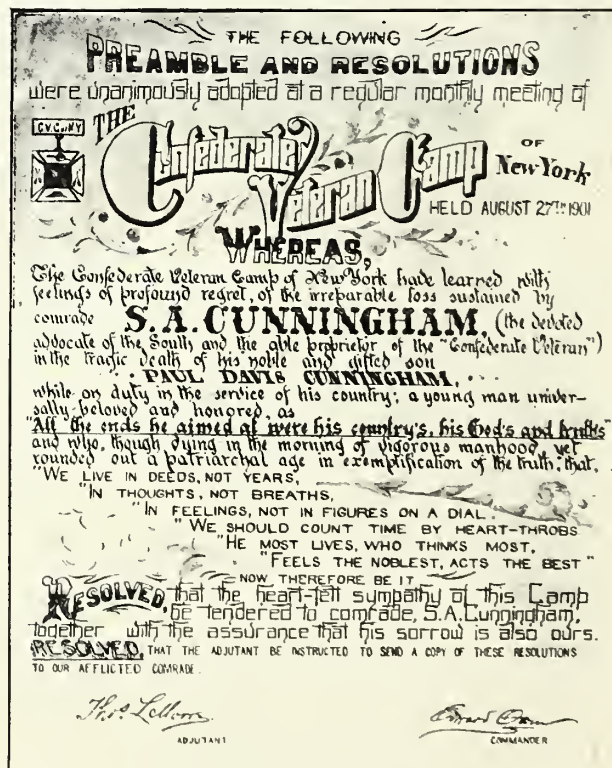 THE FOLLOWING
PREAMBLE AND RESOLUTIONS
were unanimously adopted at a regular monthly meeting of
C.V.C. of N.Y.
THE
Confederate
Veteran Camp
OF
New York
HELD AUGUST 27TH 1901
WHEREAS,
The Confederate Veteran Camp of New York have learned with
feelings of profound regret, of the irreparable loss sustained by
comrade S.A. CUNNINGHAM, (the devoted
advocate of the South and the able proprietor of the "Confederate Veteran")
in the tragic death of his noble and gifted son
PAUL DAVIS CUNNINGHAM,
while on duty in the service of his country; a young man univer-
sally beloved and honored, as
"All the ends he aimed at were his country's, his God's and truth's"
and who, though dying in the morning of vigorous manhood, yet
rounded out a patriarchal age in exemplification of the truth; that,
"WE LIVE IN DEEDS, NOT YEARS,
"IN THOUGHTS, NOT BREATHS,
"IN FEELINGS, NOT IN FIGURES ON A DIAL.
"WE SHOULD COUNT TIME BY HEART-THROBS
"HE MOST LIVES, WHO THINKS MOST,
"FEELS THE NOBLEST, ACTS THE BEST"
NOW THEREFORE BE IT
RESOLVED, that the heart-felt sympathy of this Camp
be tendered to comrade, S.A. Cunningham,
together with the assurance that his sorrow is also ours.
RESOLVED, THAT THE ADJUTANT BE INSTRUCTED TO SEND A COPY OF THESE RESOLUTIONS
TO OUR AFFLICTED COMRADE.
Thos.
Edward
ADJUTANT
COMMANDER